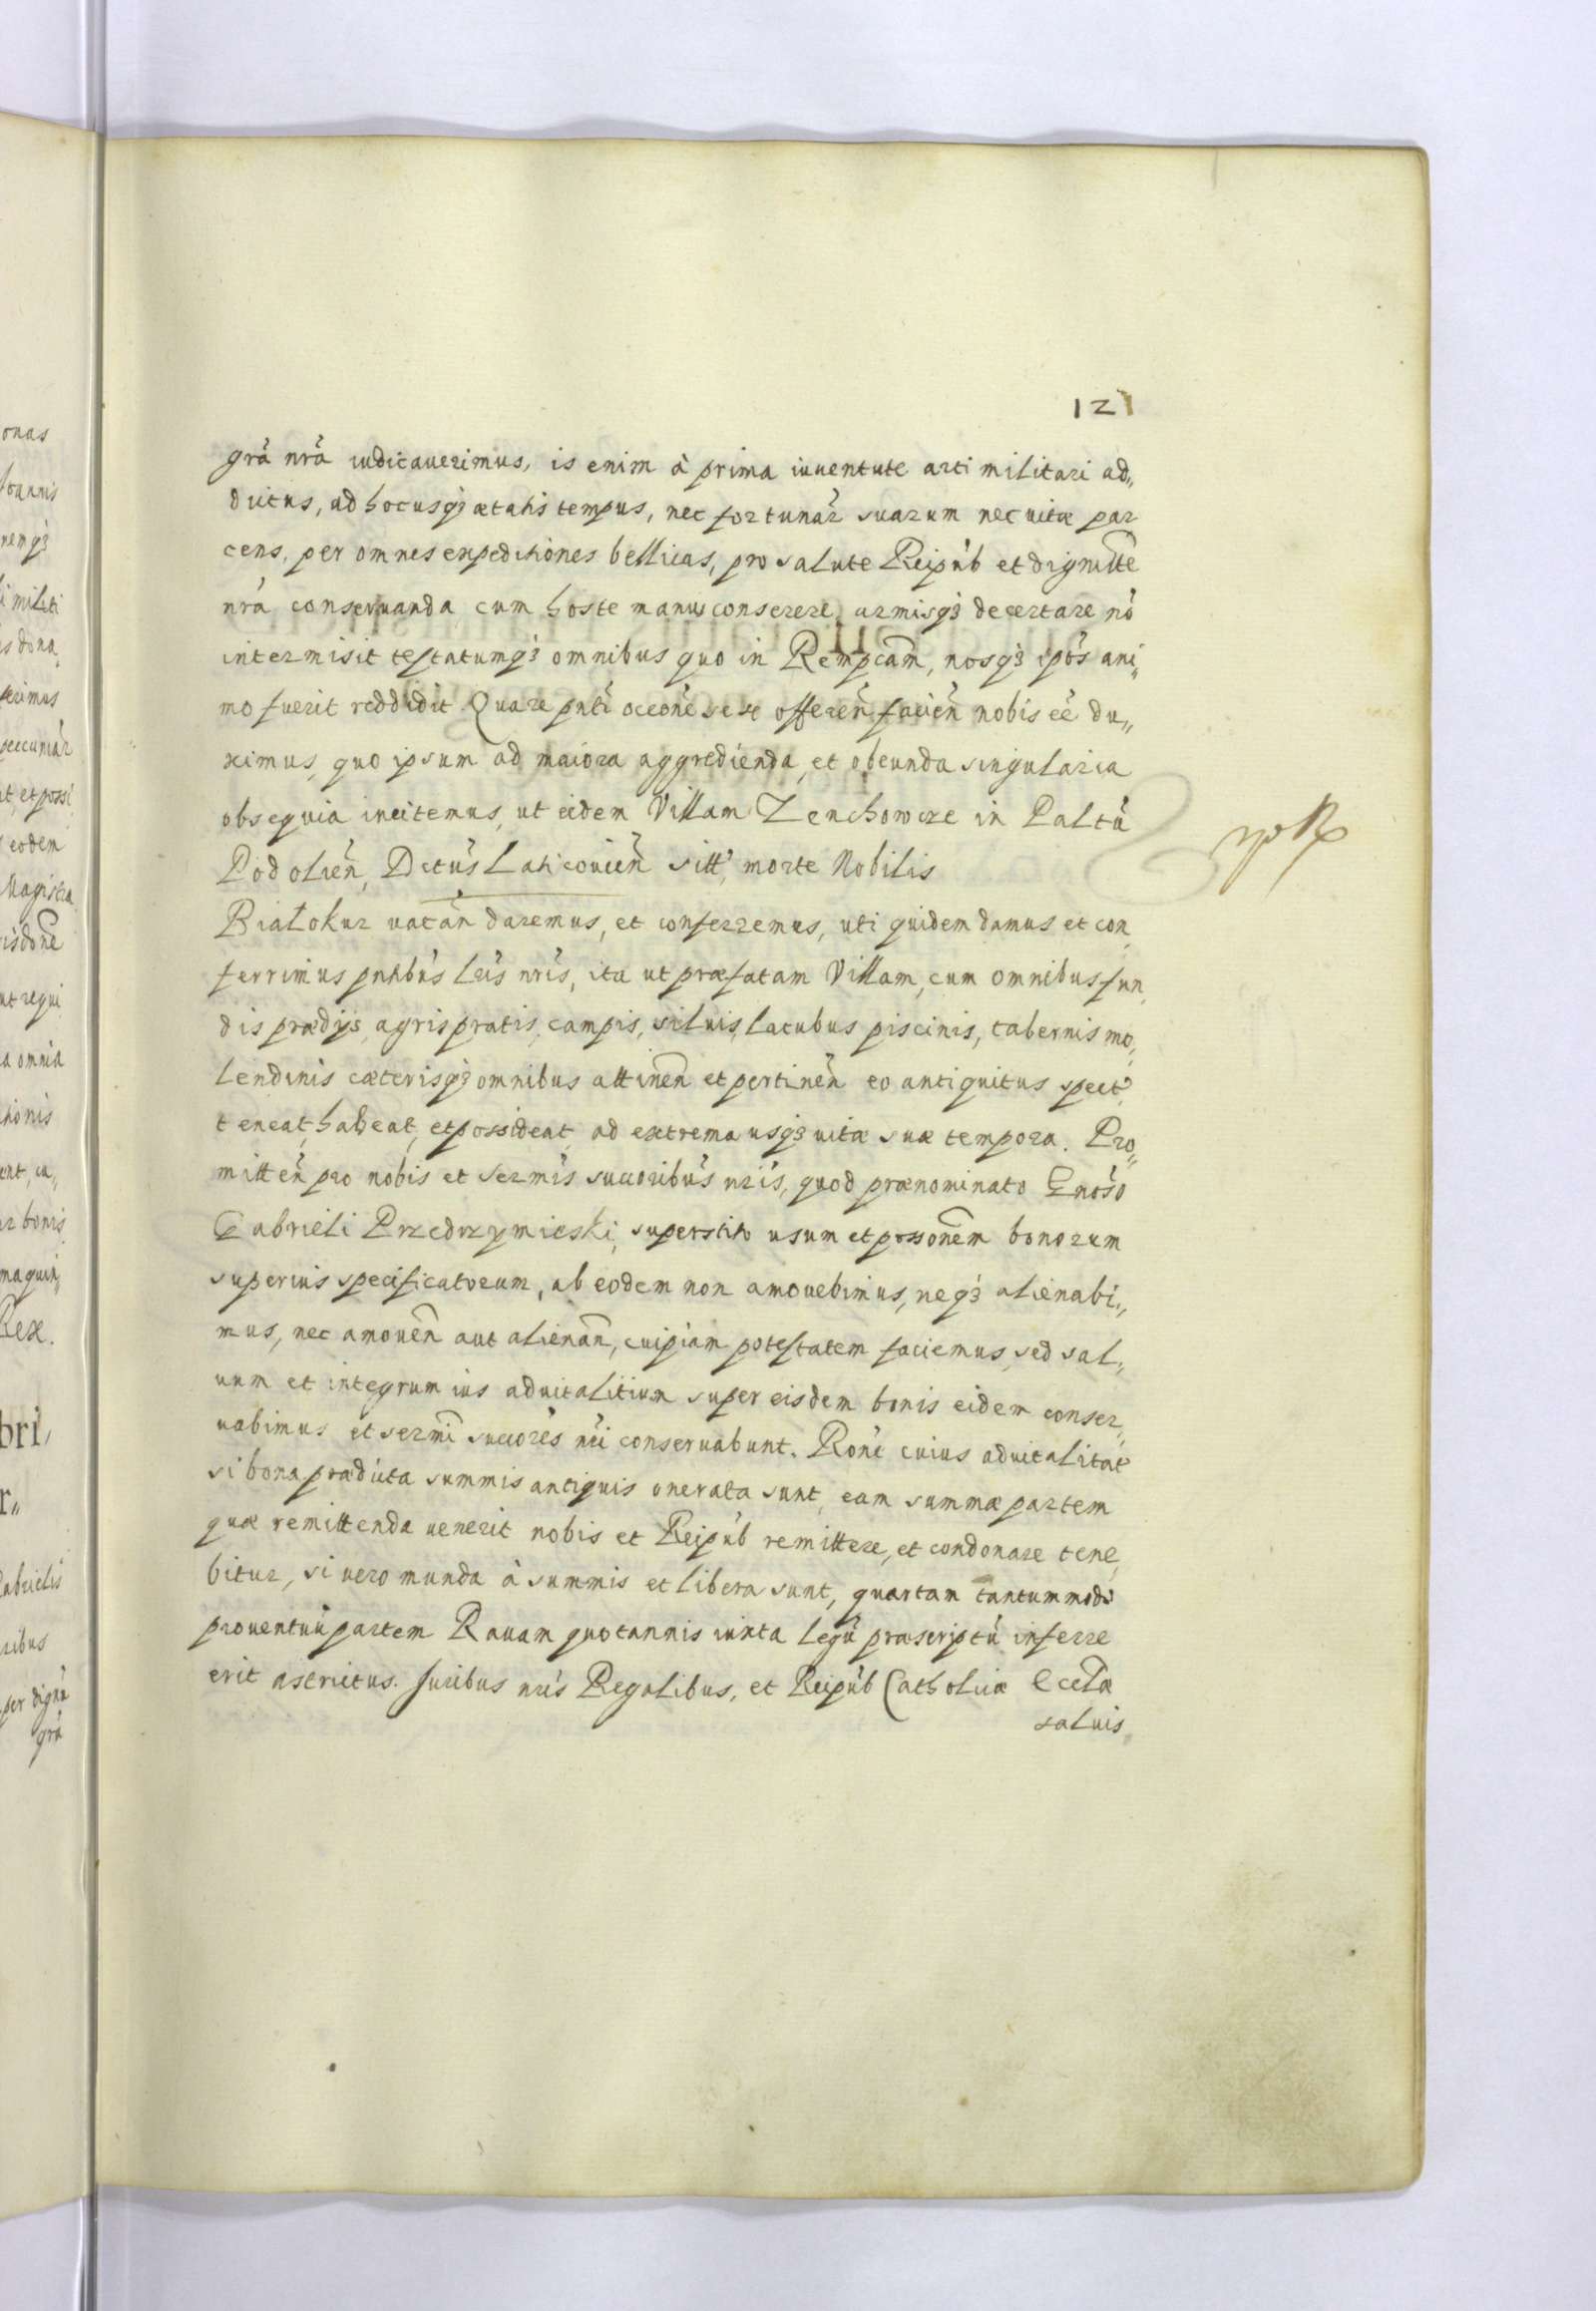 121
grã nrã iudicauerimus, is enim à prima iuuentute arti militari ad„
dictus, ad hocusqȝ ætatis tempus, nec fortunar̃ suarum nec uitæ par
cens, per omnes expeditiones bellicas, pro salute Reipub̃ et dignitte
nrã conseruanda cum hoste manus conserere armisqȝ decertare nõ
intermisit testatumqȝ omnibus quo in Rempcam, nosqȝ ipõs ani„
mo fuerit reddidit Quare pnti occone sese offeren̄ facien̄ nobis eẽ du„
ximus, quo ipsum ad maiora aggredienda, et obeunda singularia
obsequia incitemus, ut eidem Villam Zenchowcze in Paltũ
Podolien̄, Dctus Laticouien̄ sitt̃, morte Nobilis
Białokur uacan̄ daremus, et conferremus, uti quidem damus et con„
ferrimus pntibus Lris nris, ita ut præfatam Villam, cum omnibus fun„
dis prædijs, agris pratis, campis, siluis, lacubus piscinis, tabernis mo„
lendinis cæterisqȝ omnibus attinen̄ et pertinen̄ eo antiquitus spect̃
teneat, habeat, et possideat ad extrema usqȝ uitæ suæ tempora. Pro„
mitten̄ pro nobis et sermis succoribus nris, quod prænominato Gnoso
Gabrieli Przedrzymieski, superstiti usum et possonem bonorum
superius specificatorum, ab eodem non amouebimus, neqȝ alienabi„
mus, nec amouen̄ aut alienan̄, cuipiam potestatem faciemus, sed sal„
uum et integrum ius aduitalitium super eisdem bonis eidem conser„
uabimus et sermi succores nri conseruabunt. Rone cuius aduitalitat̃
si bona prædicta summis antiquis onerata sunt, eam summæ partem
quæ remittenda uenerit nobis et Reipub̃ remittere, et condonare tene„
bitur, si uero munda à summis et libera sunt, quartam tantummodo
prouentuũ partem Rauam quotannis iuxta legũ præscriptũ inferre
erit astrictus. Juribus nris Regalibus, et Reipub̃ Catholicæ Eccłæ
saluis„